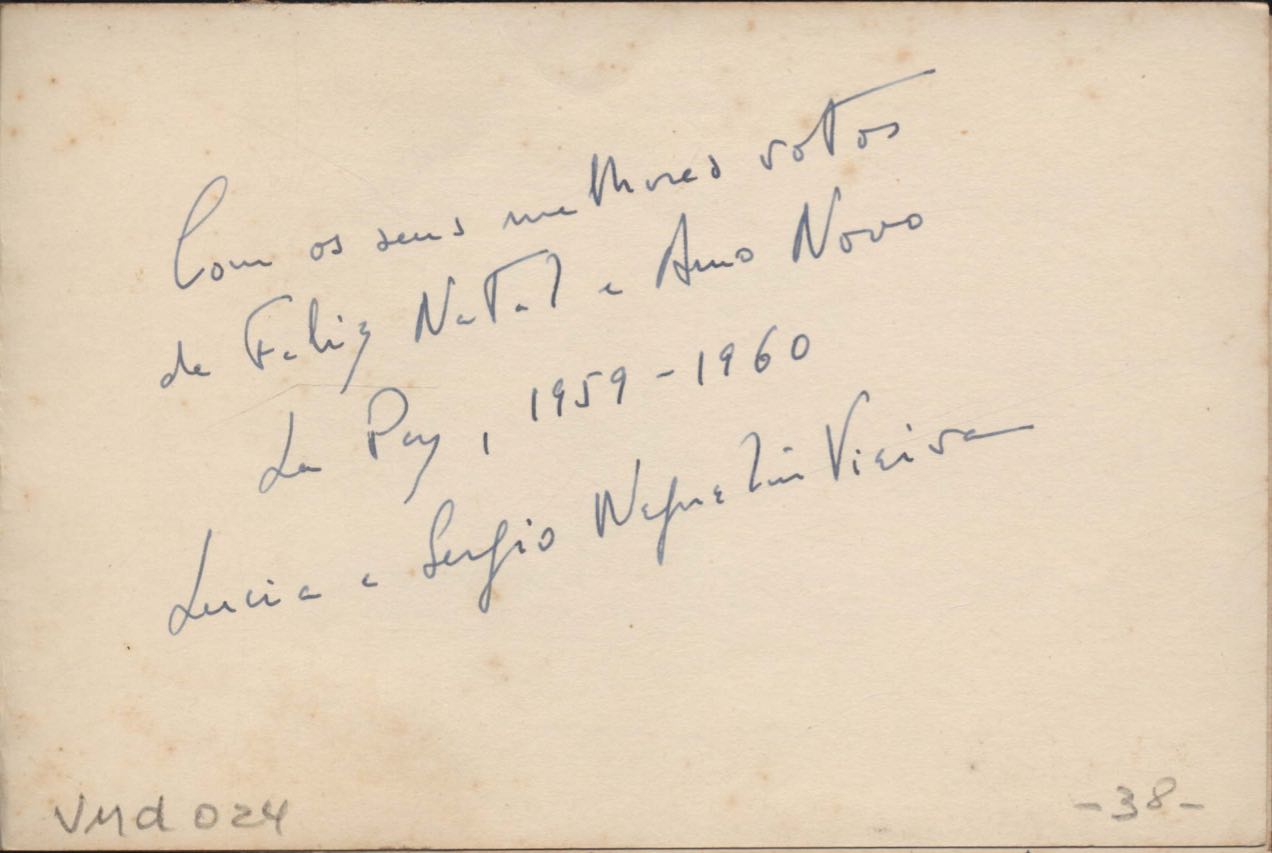 Com os seus melhores votos
de Feliz Natal e Ano Novo
La Paz, 1959-1960
Lucia e Sergio Vieira
VMd 024
-38-